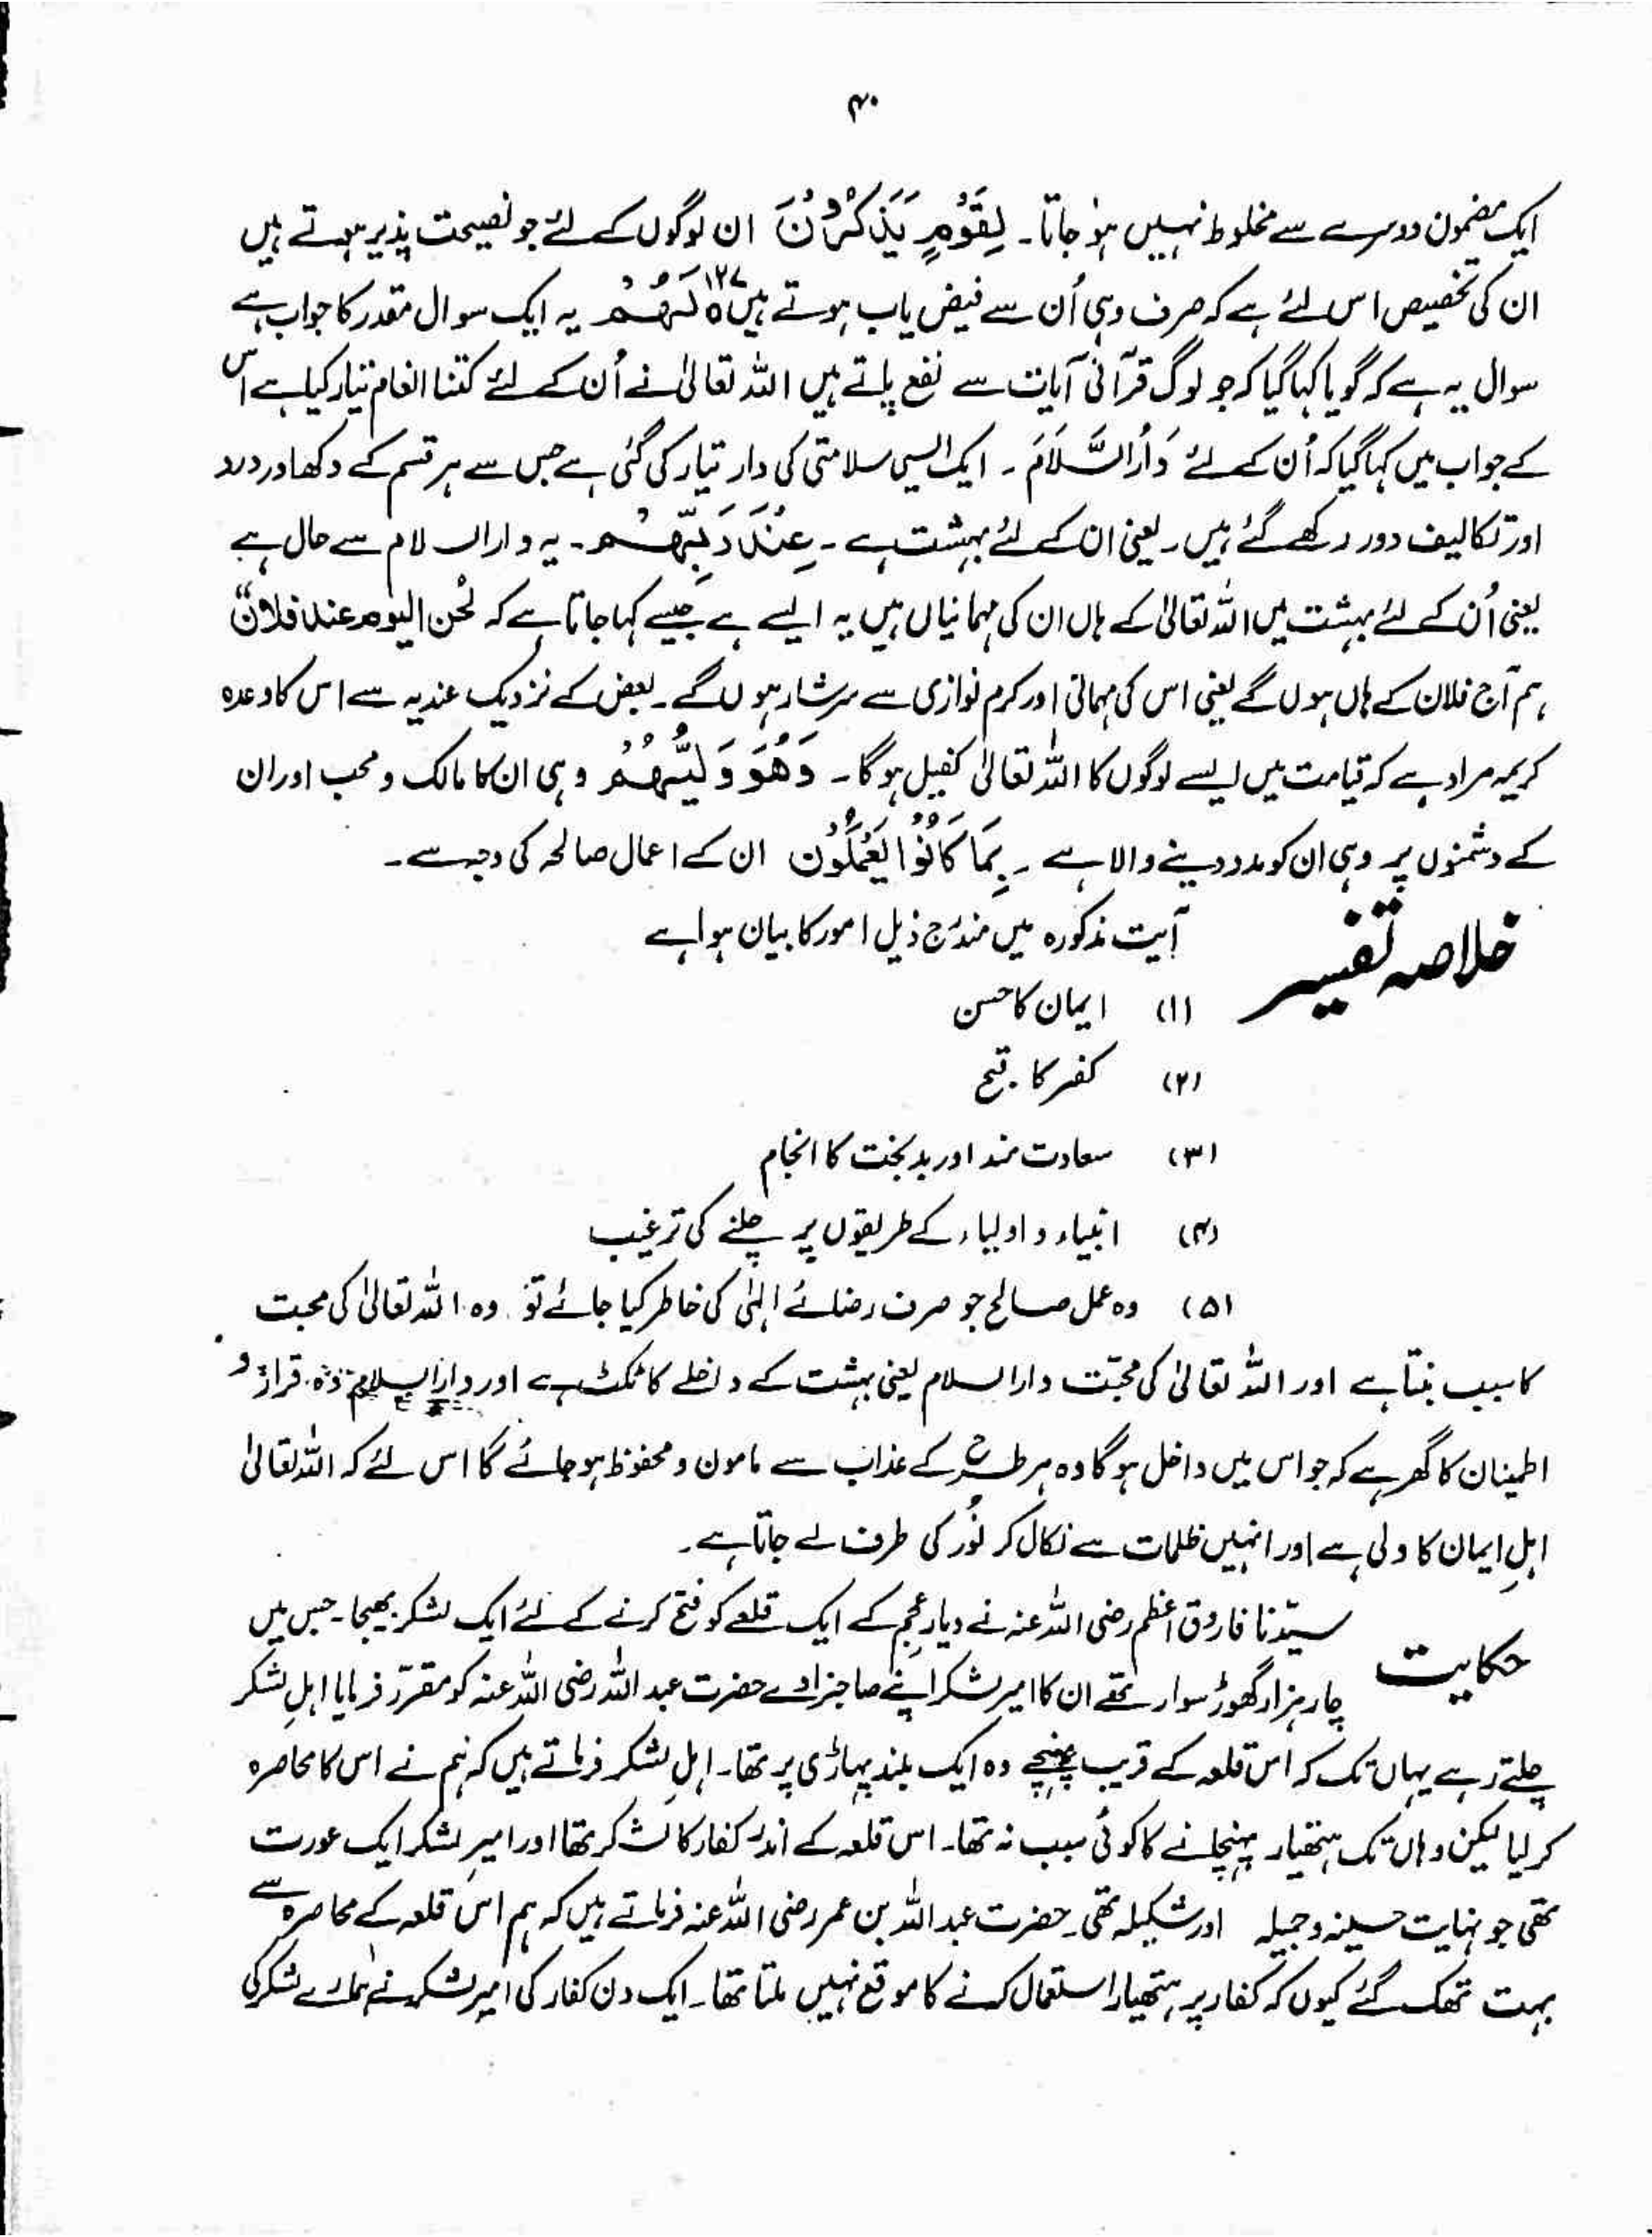 ۴۰
ایک مضمون دوسرے سے مخلوط نہیں ہو جاتا۔ لِقَوْمٍ یَذَّکَّرُوْنَ ان لوگوں کے لئے جو نصیحت پذیر ہوتے ہیں
ان کی تخصیص اس لئے ہے کہ صرف وہی اُن سے فیض یاب ہوتے ہیں ۱۲۷؁ لَہُمْ یہ ایک سوال مقدر کا جواب ہے
سوال یہ ہے کہ گویا کہا گیا کہ جو لوگ قرآنی آیات سے نفع پاتے ہیں اللہ تعالیٰ نے اُن کے لئے کتنا انعام تیار کیا ہے اس
کے جواب میں کہا گیا کہ اُن کے لئے دَارُ السَّلَامِ ۔ ایک ایسی سلامتی کی دار تیار کی گئی ہے جس سے ہر قسم کے دکھ اور درد
اور تکالیف دور رکھے گئے ہیں۔ یعنی ان کے لئے بہشت ہے ۔ عِنْدَ رَبِّہِمْ ۔ یہ دار السلام سے حال ہے
یعنی اُن کے لئے بہشت میں اللہ تعالیٰ کے ہاں ان کی مہمانیاں ہیں یہ ایسے ہے جیسے کہا جاتا ہے کہ نحن الیوم عند فلان“
ہم آج فلان کے ہاں ہوں گے یعنی اس کی مہمانی اور کرم نوازی سے سرشار ہوں گے۔ بعض کے نزدیک عندیہ سے اس کا وعدہ
کریمہ مراد ہے کہ قیامت میں ایسے لوگوں کا اللہ تعالیٰ کفیل ہو گا ۔ وَہُوَ وَلِیُّہُمْ وہی ان کا مالک و محب اور ان
کے دشمنوں پر وہی ان کو مدد دینے والا ہے ۔ بِمَا کَانُوْا یَعْمَلُوْن ان کے اعمال صالحہ کی وجہ سے ۔
خلاصہ تفسیر آیت مذکورہ میں مندرج ذیل امور کا بیان ہوا ہے
(۱) ایمان کا حسن
(۲) کفر کا قبح
(۳) سعادت مند اور بدبخت کا انجام
(۴) انبیاء و اولیاء کے طریقوں پر چلنے کی ترغیب
(۵) وہ عمل صالح جو صرف رضائے الٰہی کی خاطر کیا جائے تو وہ اللہ تعالیٰ کی محبت
کا سبب بنتا ہے اور اللہ تعالیٰ کی محبّت دار السلام یعنی بہشت کے داخلے کا ٹکٹ ہے اور دار السلام وہ قرار و
اطمینان کا گھر ہے کہ جو اس میں داخل ہو گا وہ ہر طرح کے عذاب سے مامون و محفوظ ہو جائے گا اس لئے کہ اللہ تعالیٰ
اہلِ ایمان کا ولی ہے اور انہیں ظلمات سے نکال کر نُور کی طرف لے جاتا ہے ۔
حکایت سیّدنا فاروق اعظم رضی اللہ عنہ نے دیارِ عجم کے ایک قلعے کو فتح کرنے کے لئے ایک لشکر بھیجا۔ جس میں
چار ہزار گھوڑ سوار تھے ان کا امیر لشکر اپنے صاحبزادے حضرت عبد اللہ رضی اللہ عنہ کو مقرّر فرمایا اہلِ لشکر
چلتے رہے یہاں تک کہ اس قلعہ کے قریب پہنچے وہ ایک بلند پہاڑی پر تھا۔ اہلِ لشکر فرماتے ہیں کہ ہم نے اس کا محاصرہ
کر لیا لیکن وہاں تک ہتھیار پہنچانے کا کوئی سبب نہ تھا۔ اس قلعہ کے اندر کفار کا لشکر تھا اور امیرِ لشکر ایک عورت
تھی جو نہایت حسینہ و جمیلہ اور شکیلہ تھی۔ حضرت عبد اللہ بن عمر رضی اللہ عنہ فرماتے ہیں کہ ہم اس قلعہ کے محاصرہ سے
بہت تھک گئے کیوں کہ کفار پر ہتھیار استعمال کرنے کا موقع نہیں ملتا تھا۔ ایک دن کفار کی امیر لشکر نے ہمارے لشکر کی